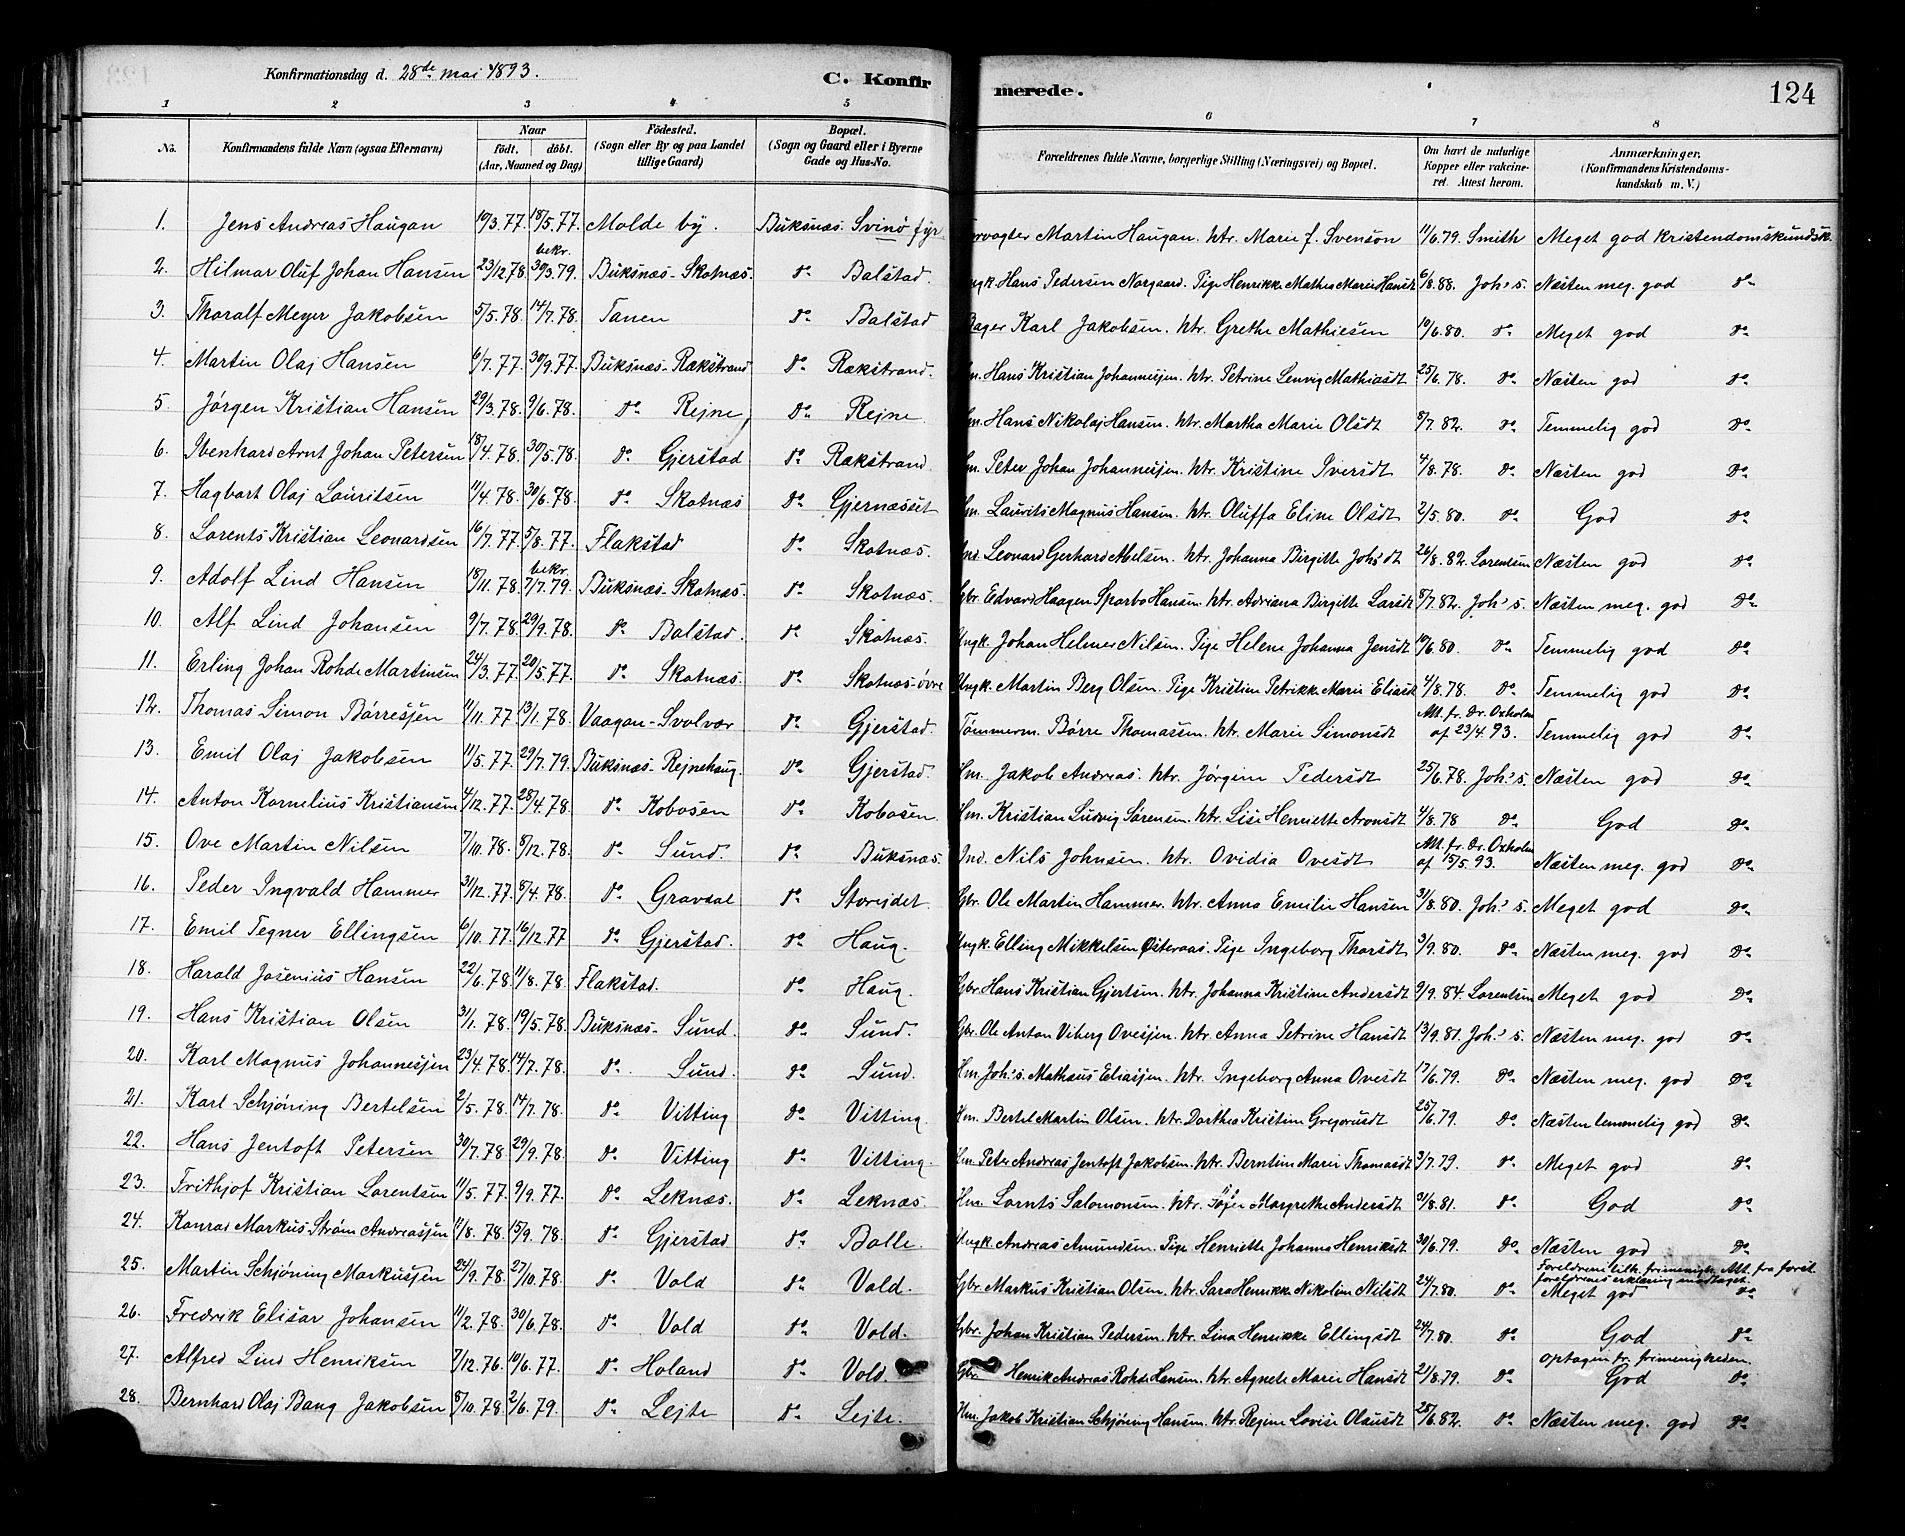 Konfirmationsdag d. 28de mai 1893.
C. Konfirmerede.
124
1 2 3 4 5 6 7 8
No. Konfirmandens fulde Navn (ogsaa Efternavn) Naar født. døbt. (Aar, Maaned og Dag) Fødested. (Sogn eller By og paa Landet tillige Gaard) Bopæl. (Sogn og Gaard eller i Byerne Gade og Hus-No. Forældrenes fulde Navne, borgerlige Stilling (Næringsvei) og Bopæl. Om havt de naturlige Kopper eller vakcineret. Attest herom. Anmærkninger. (Konfirmandens Kristendomskundskab m. V.)
1. Jens Andreas Haugan 19/3.77 18/5.77 Molde by. Buksnæs. Svinø fyr Martin Haugan. htr. Marie f. Svenson 11/6.79. Smith Meget god Kristendomskundsk.
2. Hilmar Oluf Johan Hansen 23/12.78. bekr. 30/3.79. Buksnæs-Skotnæs. do Balstad. Ungk. Hans Pedersen Norgaard. Pige Henrikke Mathea Marie Hansdt 6/8.88. Joh's. Næsten meg. god do
3. Tharalf Meyer Jakobsen 5/5.78. 14/7.78. Tanen do Balstad Bager Karl Jakobsen. htr. Grethe Mathiesen 10/6.80. do Meget god do
4. Martin Olaj Hansen 6/7.77. 30/9.77. Buksnæs-Rækstrand do Rækstrand. Hm. Hans Kristian Johannesjen. htr. Petrine Lenvig Mathiasdt 25/6.78. do Næsten god do
5. Jørgen Kristian Hansen 29/3.78. 9/6.78. do Rejne do Rejne Hm. Hans Nikolaj Hansen. htr. Martha Marie Olsdt 8/7.82. do Temmelig god do
6. Ibenhard Arnt Johan Petersen 18/4.78. 30/5.78. do Gjerstad do Rækstrand Hm. Peter Johan Johannesjen. htr. Kristine Iversdt 4/8.78. do Næsten god do
7. Hagbart Olaj Lauritsen 11/4.78. 30/6.78. do Skotnæs do Gjernæsset Hm. Laurits Magnus Hansen. htr. Oluffa Eline Olsdt 2/5.80. do God do
8. Lorents Kristian Leonardsen 16/7.77. 5/8.77. Flakstad do Skotnæs. Ind. Leonard Gerhard Abelsen. htr. Johanna Birgitte Joh'sdt 26/8.82. Lorentsen Næsten god do
9. Adolf Lind Hansen 18/11.78. bekr. 7/7.79. Buksnæs-Skotnæs. do Skotnæs. Gbr. Edvard Haagen Sparbo Hansen htr. Adriana Birgitte Larsdt 8/7.82. Joh's. Næsten meg. god do
10. Alf Lind Johansen 9/7.78. 29/9.78. do Balstad. do Skotnæs. Ungk. Johan Helmer Nilsen. Pige Helene Johanna Jensdt 10/6.80. do Temmelig god do
11. Erling Johan Rohde Martinsen 24/3.77. 20/5.77. do Skotnæs. do Skotnæs-øvre Ungk. Martin Berg Olsen. Pige Kristine Petrikke Marie Eliasdt 4/8.78. do Temmelig god do
12. Thomas Simon Børresjen 11/11.77. 13/1.78. Vaagan-Svolvær do Gjerstad. Tømmerm. Børre Thomassen. htr. Marie Simonsdt Att. fr. Dr. Oxholm af 23/4.93. Temmelig god do
13. Emil Olaj Jakobsen 11/5.77. 29/7.79. Buksnæs-Rejnehaug. do Gjerstad. Hm. Jakob Andreas. htr. Jørgine Pedersdt 25/6.78. Joh's. Næsten god do
14. Anton Kornelius Kristiansen 4/12.77. 28/4.78. do Kobosen do Kobosen Hm. Kristian Ludvig Sørensen. htr. Lise Henriette Aronsdt 4/8.78 do God do
15. Ove Martin Nilsen 7/10.78. 8/12.78. do Sund. do Buksnæs. Ind. Nils Johnsen. htr. Ovidia Ovesdt Att. fr. Dr. Oxholm af 15/5.93. Næsten meg. god do
16. Peder Ingvald Hammer 31/12.77. 8/4.78. do Gravdal do Storejdet. Gbr. Ole Martin Hammer. htr. Anna Emilie Hansen 31/8.80. Joh's. Meget god do
17. Emil Tegner Ellingsen 6/10.77. 16/12.77 do Gjerstad. do Haug. Ungk. Elling Mikkelsen Østeraas. Pige Ingeborg Tharsdt 3/9.80. do Næsten meg. god do
18. Harald Josenius Hansen 22/6.78. 11/8.78. Flakstad. do Haug. Gbr. Hans Kristian Gjertsen. htr. Johanna Kristine Andersdt 9/9.84. Lorentsen Meget god do
19. Hans Kristian Olsen 31/1.78. 19/5.78. Buksnæs-Sund. do Sund. Gbr. Ole Anton Viberg Ovesjen. htr. Anna Petrine Hansdt 13/9.81. Joh's. Næsten meg. god do
20. Karl Magnus Johannesjen 23/4.78. 14/7.78. do Sund. do Sund. Hm. Joh's. Mathæus Eliasjen. htr. Ingeborg Anna Ovesdt 17/6.79. do Næsten meg. god do
21. Karl Schjöning Bertelsen 2/5.78. 14/7.78. do Vitting do Vitting. Hm. Bertel Martin Olsen. htr. Dorthea Kristine Gregorusdt 25/6.79. do Næsten temmelig god do
22. Hans Jentoft Petersen 30/7.78 29/9.78. do Vitting do Vitting. Hm. Peter Andreas Jentoft Jakobsen. htr. Berntine Marie Thomasdt 3/7.79. do Meget god do
23. Frithjof Kristian Lorentsen 11/5.77. 9/9.77. do Leknæs. do Leknæs. Hm. Lornts Salomonsen. htr. Sofie Margrethe Andersdt 31/8.81. do God do
24. Konrad Markus Strøm Andreasjen 11/8.78. 15/9.78. do Gjerstad do Bolle. Ungk. Andreas Amundsen. Pige Henriette Johanna Henriksdt 30/6.79. do Næsten god do
25. Martin Schjöning Markusjen 24/9.78. 27/10.78. do Vold do Vold. Gbr. Markus Kristian Olsen. htr. Sara Henrikke Nikoline Nilsdt 24/7.80. do Foreldrene tilh. frimenigh. Att. fra forst. foreldrenes erklæring modtaget. Meget god do
26. Fredrik Elisar Johansen 11/2.78. 30/6.78. do Vold do Vold. Gbr. Johan Kristian Pedersen. htr. Lina Henrikke Ellingsdt 24/7.80. do God do
27. Alfred Lind Henriksen 7/12.76. 10/6.77. do Holand do Vold. Gbr. Henrik Andreas Rohde Hansen. htr. Agnete Marie Hansdt 21/8.79. do Optagen fr. frimenigheden. God do
28. Bernhard Olaj Bang Jakobsen 8/10.78. 2/6.79. do Lejte do Lejte. Hm. Jakob Kristian Schjöning Hansen. htr. Regine Lovise Olausdt 25/6.82. do Næsten meg. god do